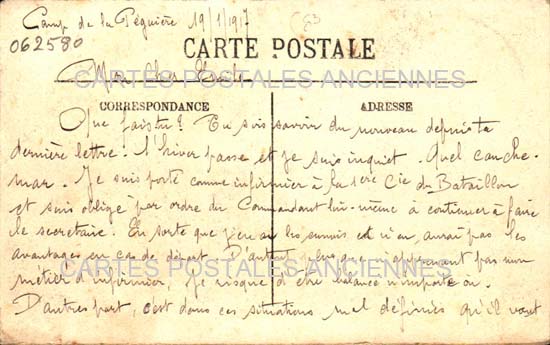 Camp de la Péguière 19/1/1917
062580
CARTE POSTALE
Mon cher
CARTES POSTALES ANCIENNES
CORRESPONDANCE ADRESSE
Que fais tu ? Tu dois avoir du nouveau depuis ta
dernière lettre ! L'hiver passe et je suis inquiet. Quel cauche-
mar. Je suis porté comme infirmier à la 1ère Cie du Bataillon
et suis obligé par ordre du Commandant lui-même à continuer à faire
le secretaire. En sorte que j'en ai les ennuis et n'en aurai pas les
avantages en cas de départ. D'autant plus que n'apprenant pas mon
CARTES POSTALES ANCIENNES
métier d'infirmier, je risque d'être balancé n'importe où.
D'autres part, c'est dans ces situations mal définies qu'il vaut